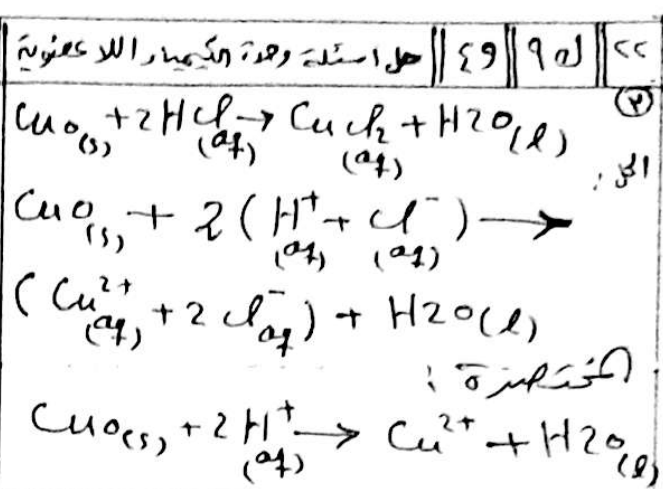 حل اسئلة وحدة الكيمياء اللا عضوية || ٤9 || ك٩ || >>
٢
CuO(s) + 2HCl(aq) → CuCl2(aq) + H2O(l)
CuO(s) + 2(H+(aq) + Cl-(aq)) →
(Cu2+(aq) + 2Cl-aq) + H2O(l)
المختصرة :
CuO(s) + 2H+(aq) → Cu2+ + H2O(l)